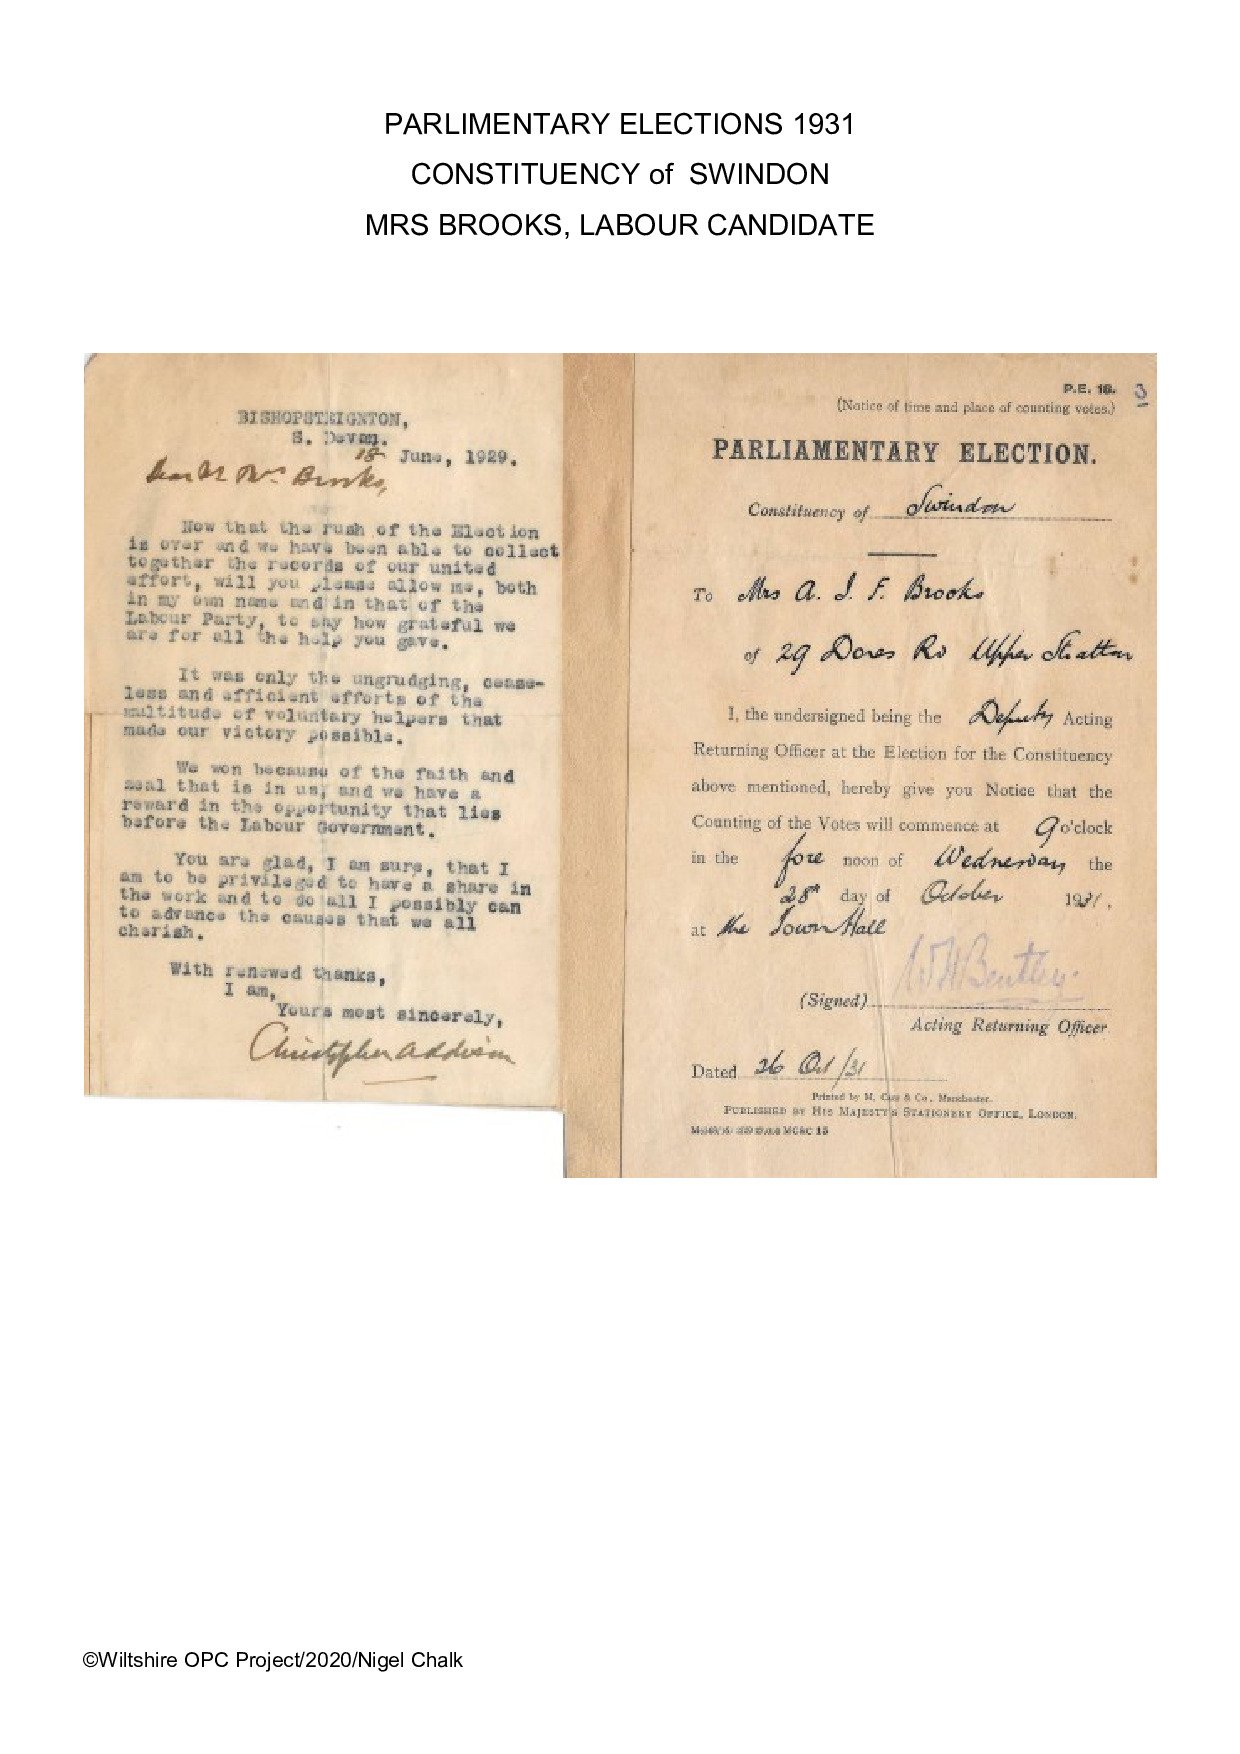 PARLIMENTARY ELECTIONS 1931
CONSTITUENCY of SWINDON
MRS BROOKS, LABOUR CANDIDATE
BISHOPSTEIGNTON,
S. Devon.
18 June, 1929.
Brooks,
Now that the rush of the Election
is over and we have been able to collect
together the records of our united
effort, will you please allow me, both
in my own name and in that of the
Labour Party, to say how grateful we
are for all the help you gave.
It was only the ungrudging, cease-
less and efficient efforts of the
multitude of voluntary helpers that
made our victory possible.
We won because of the faith and
zeal that is in us, and we have a
reward in the opportunity that lies
before the Labour Government.
You are glad, I am sure, that I
am to be privileged to have a share in
the work and to do all I possibly can
to advance the causes that we all
cherish.
With renewed thanks,
I am,
Yours most sincerely,
Christopher Addison
P.E. 18. 3
(Notice of time and place of counting votes.)
PARLIAMENTARY ELECTION.
Constituency of Swindon
To Mrs A. J. F. Brooks
of 29 Dores Rd Upper Stratton
I, the undersigned being the Deputy Acting
Returning Officer at the Election for the Constituency
above mentioned, hereby give you Notice that the
Counting of the Votes will commence at 9 o'clock
in the fore noon of Wednesday the
28th day of October 1931.
at the Town Hall
(Signed) Bentley.
Acting Returning Officer
Dated 26 Oct/31
Printed by M. & Co., Manchester.
PUBLISHED BY HIS MAJESTY'S STATIONERY OFFICE, LONDON.
©Wiltshire OPC Project/2020/Nigel Chalk